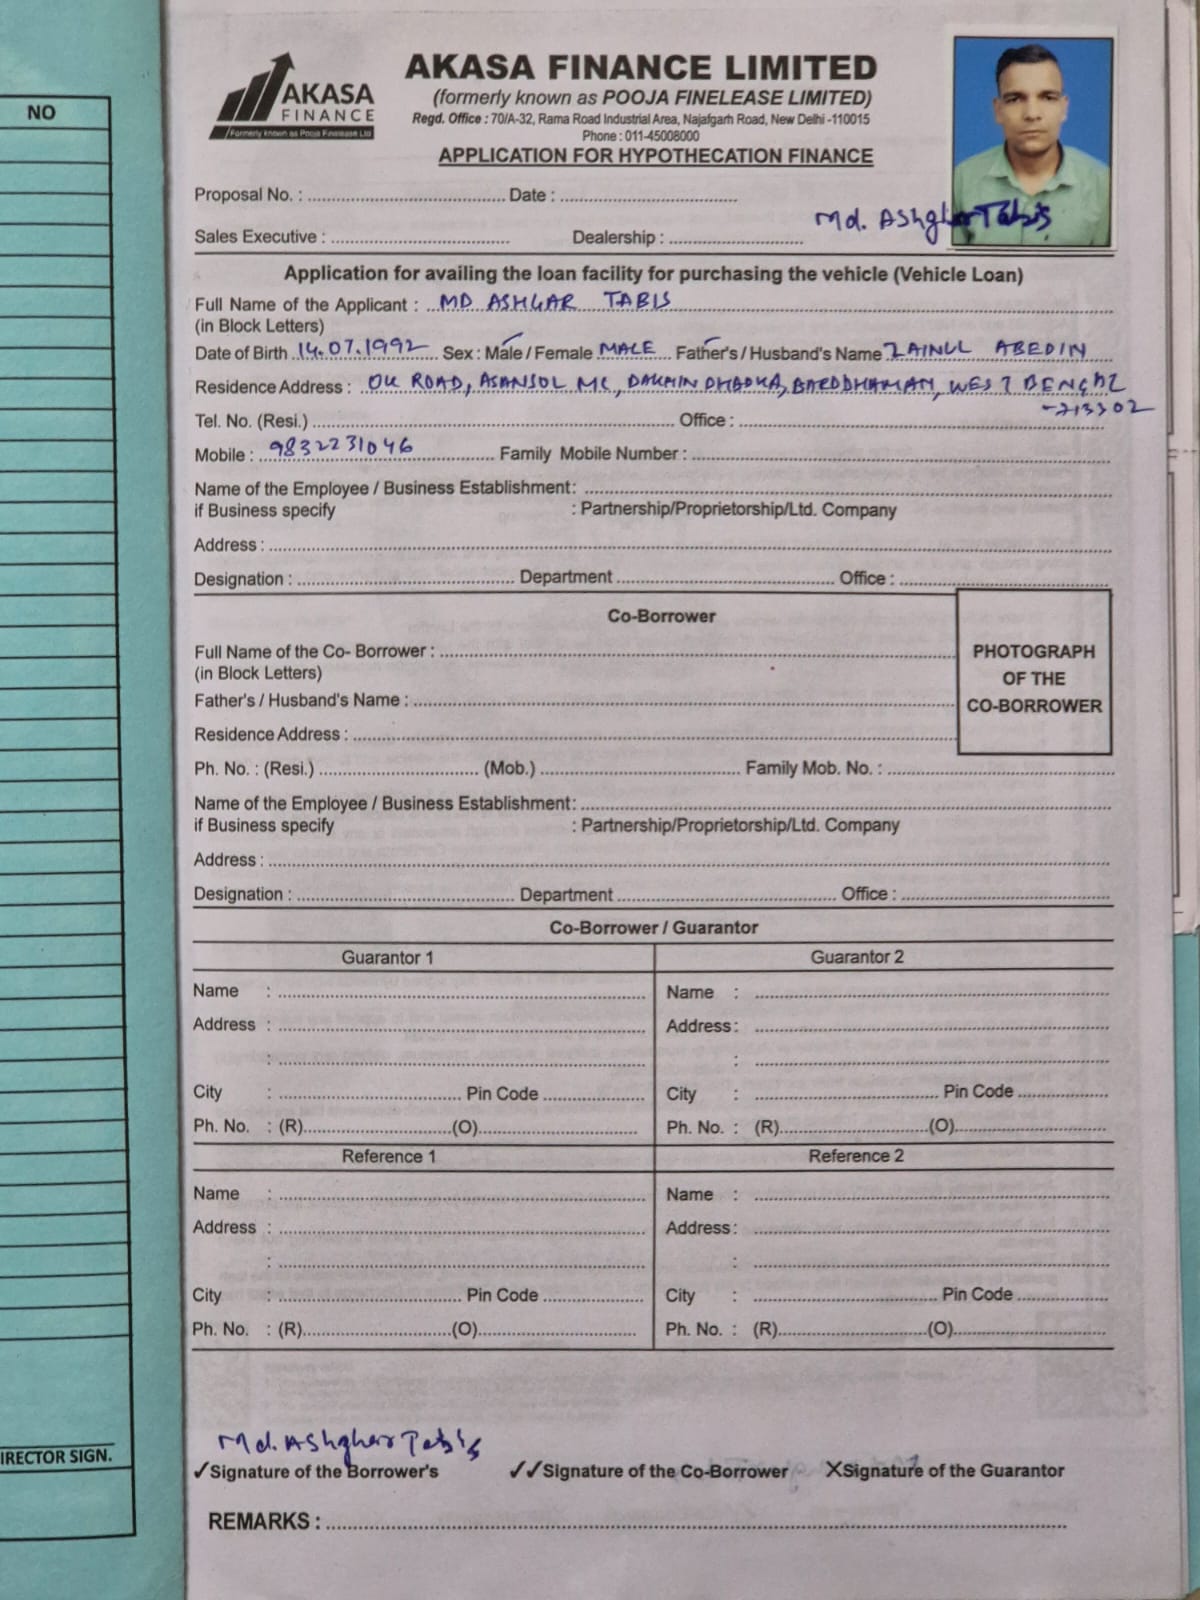 NO
AKASA
FINANCE
Formerly known as Pooja Finelease Ltd
AKASA FINANCE LIMITED
(formerly known as POOJA FINELEASE LIMITED)
Regd. Office : 70/A-32, Rama Road Industrial Area, Najafgarh Road, New Delhi -110015
Phone : 011-45008000
APPLICATION FOR HYPOTHECATION FINANCE
Proposal No. : Date :
Md. Ashghar Tabis
Sales Executive : Dealership :
Application for availing the loan facility for purchasing the vehicle (Vehicle Loan)
Full Name of the Applicant : MD ASHGAR TABIS
(in Block Letters)
Date of Birth 14.07.1992 Sex : Male / Female MALE Father's / Husband's Name ZAINUL ABEDIN
Residence Address : OK ROAD, ASANSOL MC, DAKHIN DHADKA, BARDDHAMAN, WEST BENGAL
-713302
Tel. No. (Resi.) Office :
Mobile : 9832231046 Family Mobile Number :
Name of the Employee / Business Establishment:
if Business specify : Partnership/Proprietorship/Ltd. Company
Address :
Designation : Department Office :
Co-Borrower
Full Name of the Co- Borrower :
(in Block Letters)
PHOTOGRAPH
OF THE
CO-BORROWER
Father's / Husband's Name :
Residence Address :
Ph. No. : (Resi.) (Mob.) Family Mob. No. :
Name of the Employee / Business Establishment:
if Business specify : Partnership/Proprietorship/Ltd. Company
Address :
Designation : Department Office :
Co-Borrower / Guarantor
Guarantor 1 Guarantor 2
Name : Name :
Address : Address :
: :
City : Pin Code City : Pin Code
Ph. No. : (R) (O) Ph. No. : (R) (O)
Reference 1 Reference 2
Name : Name :
Address : Address :
: :
City : Pin Code City : Pin Code
Ph. No. : (R) (O) Ph. No. : (R) (O)
Md. Ashghar Tabis
IRECTOR SIGN.
✓Signature of the Borrower's ✓✓Signature of the Co-Borrower XSignature of the Guarantor
REMARKS :